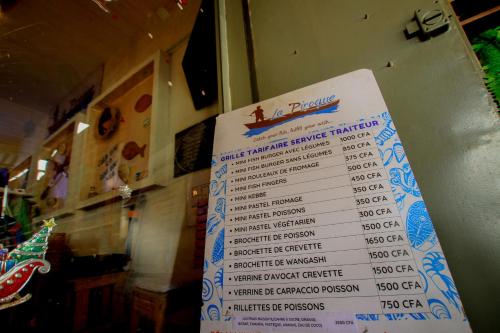 La Pirogue
GRILLE TARIFAIRE SERVICE TRAITEUR
• MINI FISH BURGER AVEC LÉGUMES 1000 CFA
• MINI FISH BURGER SANS LÉGUMES 850 CFA
• MINI ROULEAUX DE FROMAGE 375 CFA
• MINI FISH FINGERS 500 CFA
• MINI KEBBE 450 CFA
• MINI PASTEL FROMAGE 350 CFA
• MINI PASTEL POISSONS 300 CFA
• MINI PASTEL VÉGÉTARIEN 350 CFA
• BROCHETTE DE POISSON 1500 CFA
• BROCHETTE DE CREVETTE 1650 CFA
• BROCHETTE DE WANGASHI 1500 CFA
• VERRINE D'AVOCAT CREVETTE 1500 CFA
• VERRINE DE CARPACCIO POISSON 1500 CFA
• RILLETTES DE POISSONS 750 CFA